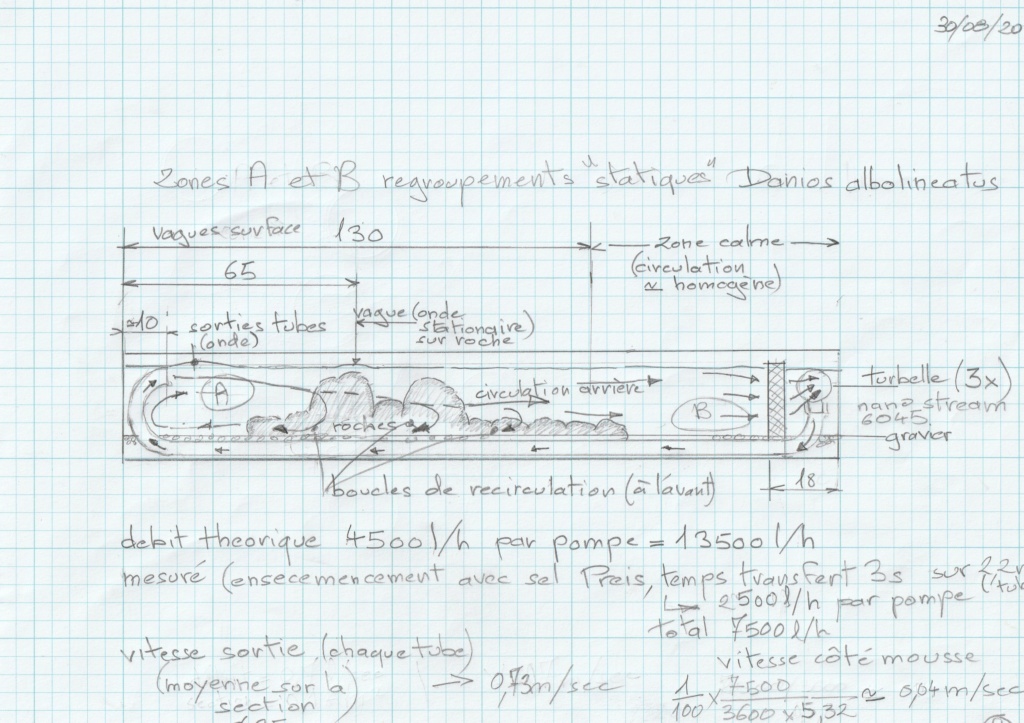 30/08/20
Zones A et B regroupements "statiques" Danios albolineatus
vagues surface 130
zone calme
(circulation
≃ homogène)
65
≈10
sorties tubes
(onde)
vague (onde
stationaire)
sur roche
A
circulation arrière
roches
B
turbelle (3x)
nano stream
6045
gravier
boucles de recirculation (à l'avant)
18
debit theorique 4500 l/h par pompe = 13500 l/h
mesuré (ensecemencement avec sel Preis, temps transfert 3s sur 2,2m
2500 l/h par pompe
total 7500 l/h
vitesse sortie (chaque tube)
(moyenne sur la
section
→ 0,73 m/sec
vitesse côté mousse
1/100 x 7500/3600 x 5,32 ≃ 0,04 m/sec